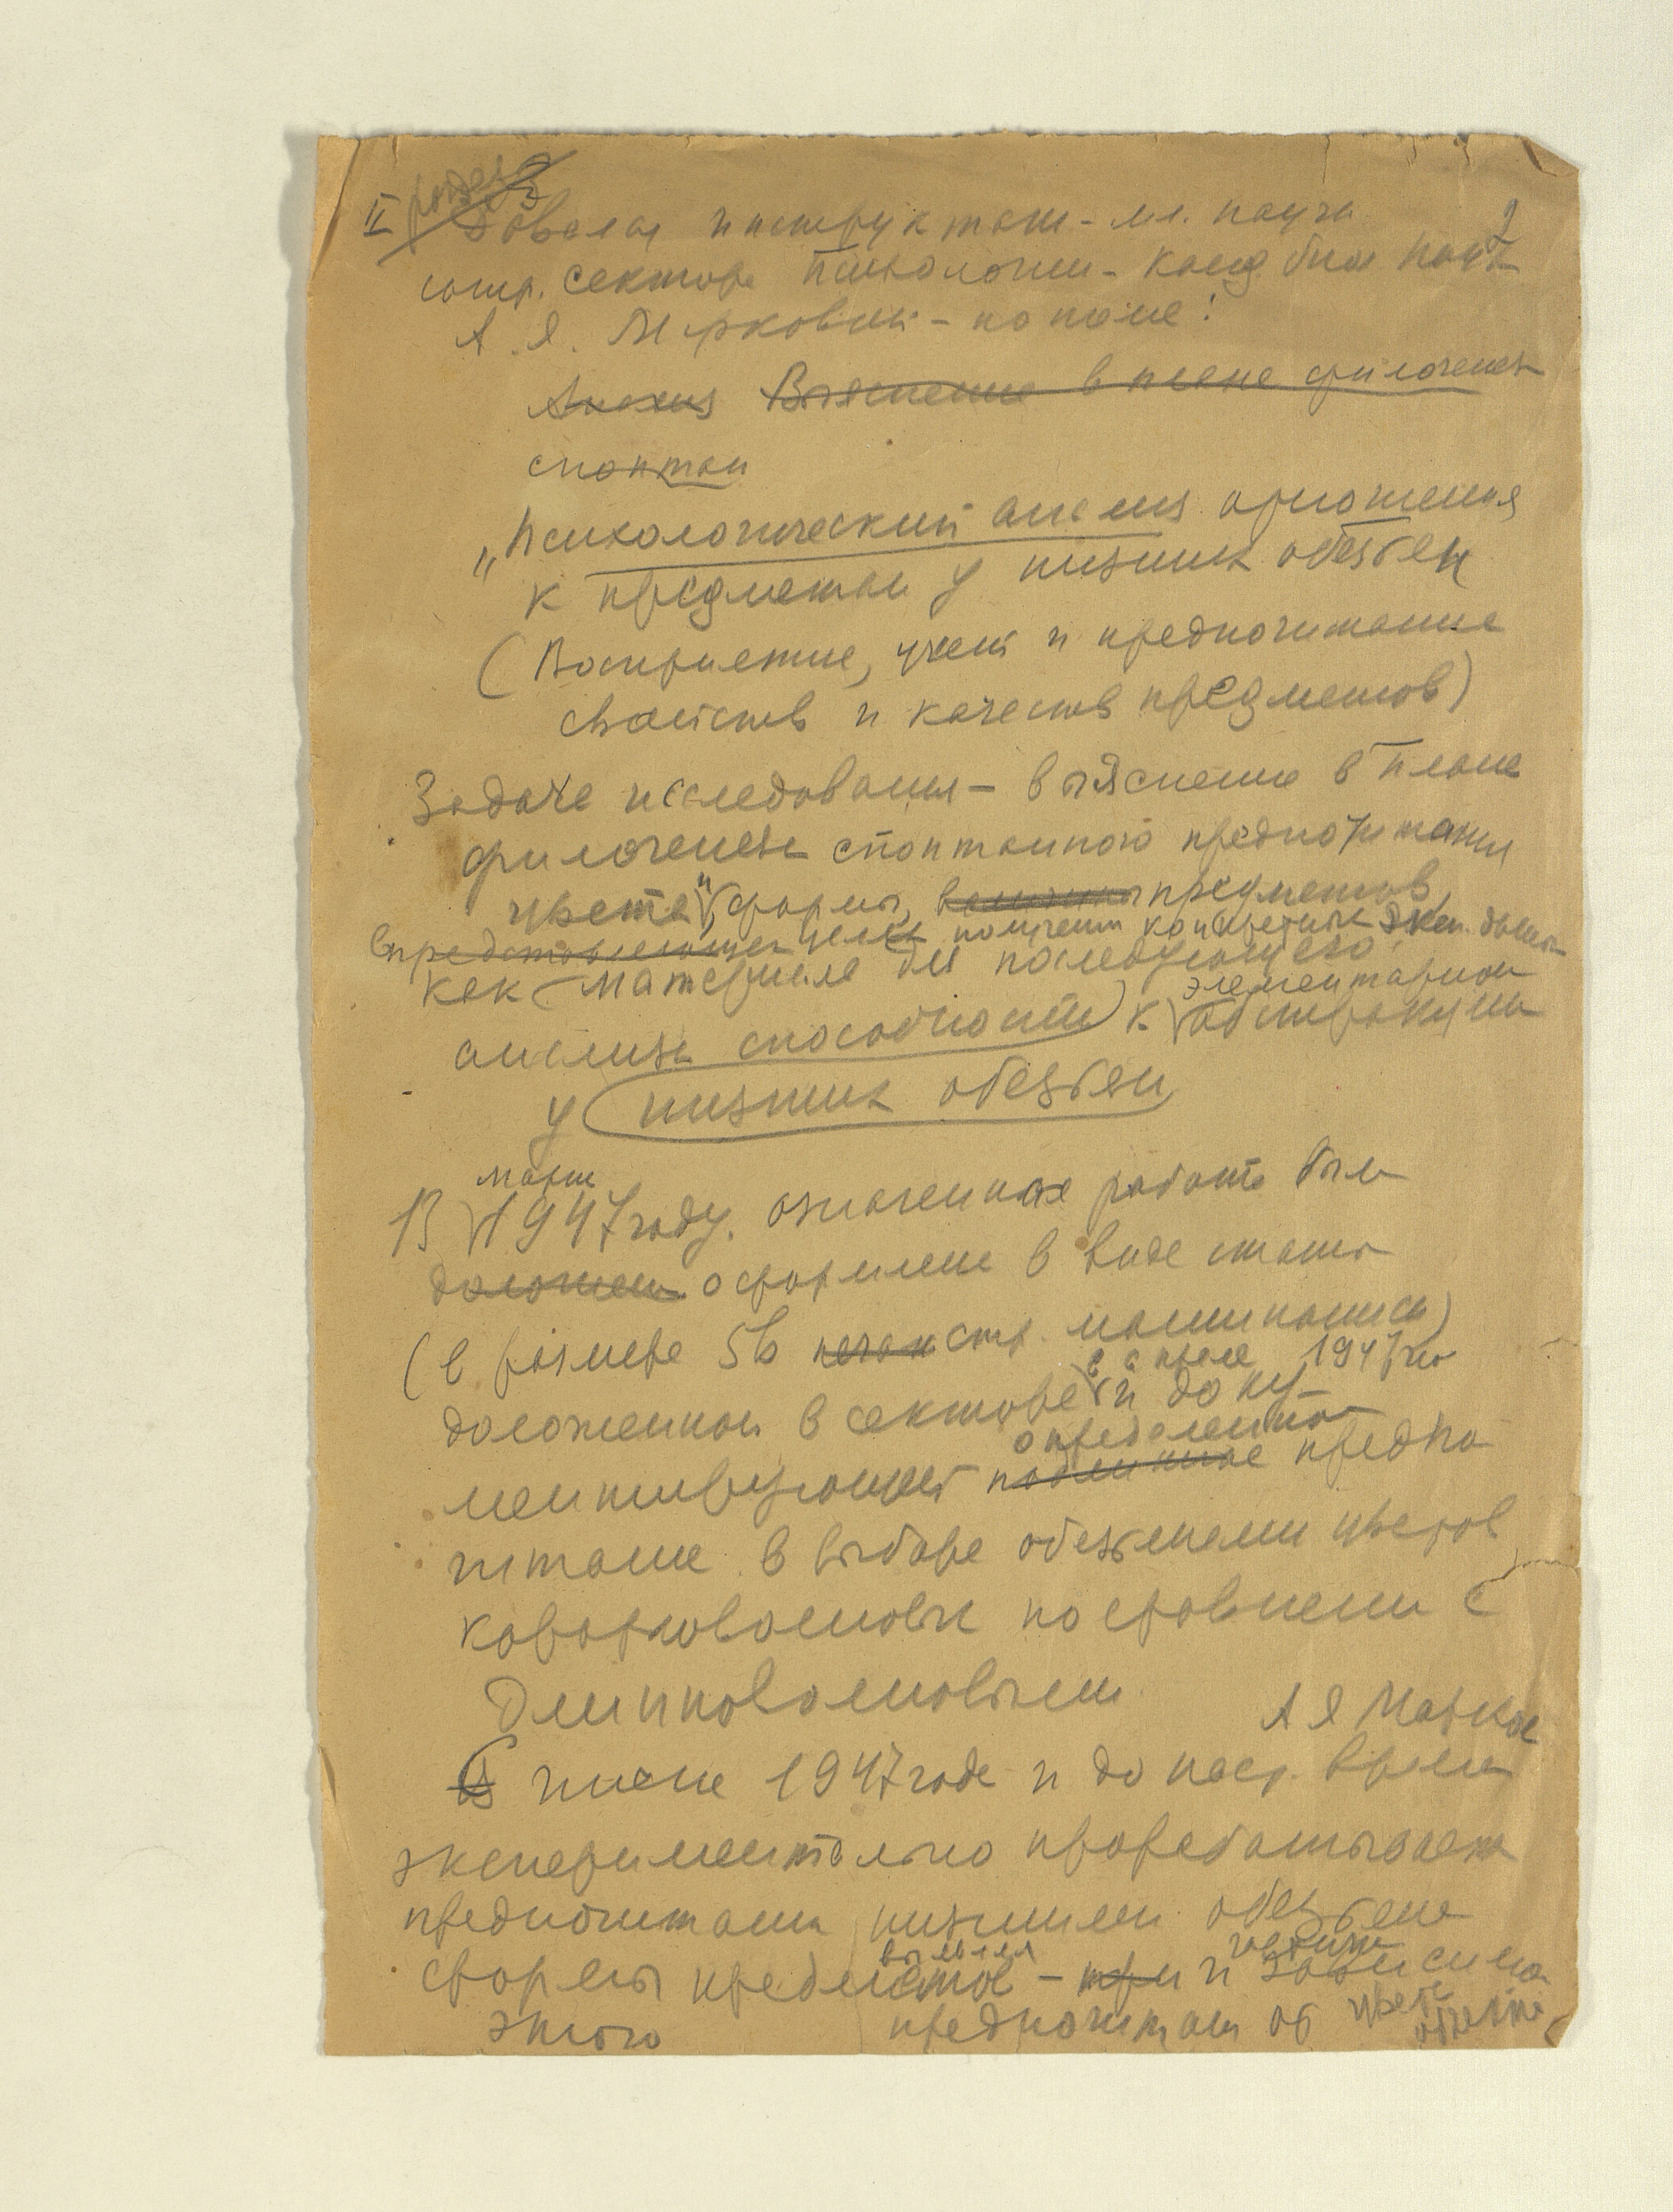 II раздел 3
Давался инструктаж - мл. научн. 2
сотр. сектора психологии - канд. биол. наук
А. Я. Марковой - по теме:
Анализ Выяснение в плане филогенет
спонтан
„Психологический анализ отношения
к предметам у низших обезьян
(Восприятие, учет и предпочитание
свойств и качеств предметов)
Задача исследования - выяснение в плане
филогенеза спонтанного предпочитания
цвета и формы, величины предметов,
в представляющей целях получения конкретных эксп. данных
как материала для последующего
элементарной
анализа способности к абстракции
у низших обезьян
марте
В 1947 году. означенная работа была
доложена оформлена в виде статьи
(в размере 56 печатн стр. машинописи)
в апреле 1947 го
доложенной в секторе и доку-
определенное
ментирующей наличное предпо
читание в выборе обезьянами цветов
коротковолновых по сравнению с
длинноволновыми А Я Маркова
С июня 1947 года и до наст. время
экспериментально прорабатывает
предпочитания низшими обезьянами
выявляя
формы предметов - при и зависимо
этого предпочитания от цвета